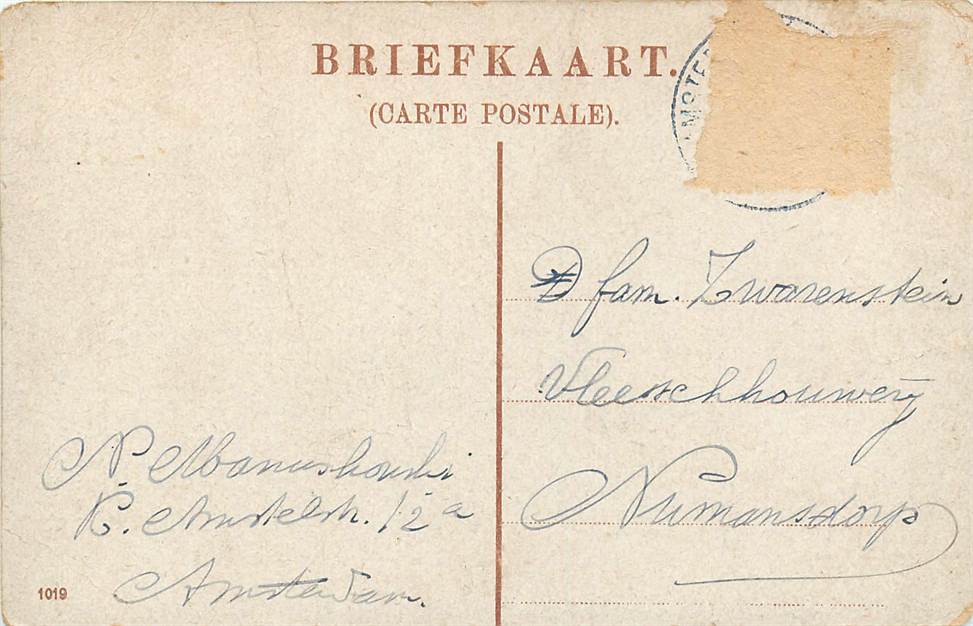 BRIEFKAART.
(CARTE POSTALE).
AMSTER
D fam. Zwarenstein
Vleeschhouwerij
Numansdorp
N.
K. Amstelstr. 12a
Amsterdam.
1019